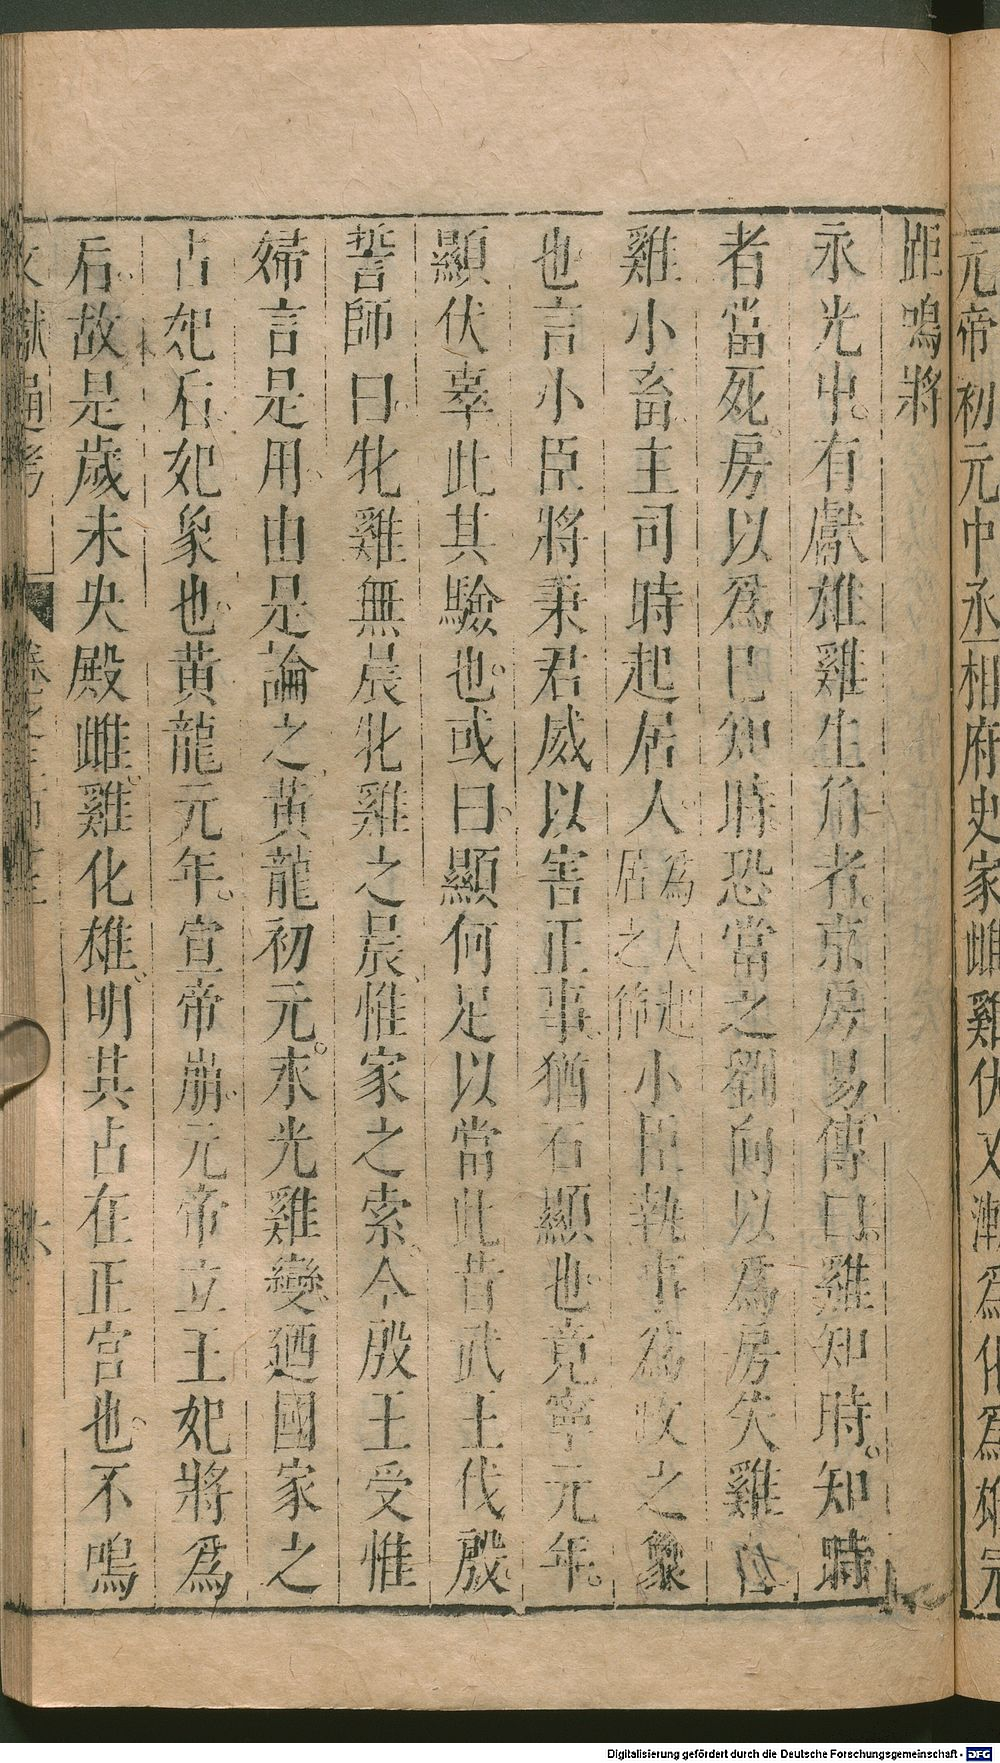 元帝初元中丞相府史家雌雞伏又漸爲化爲雄元
距鳴將
永光中有獻雄雞生角者京房易傳曰雞知時知時
者當死房以爲已知時恐當之劉向以爲房失雞占
雞小畜主司時起居人爲人起居之節小臣執事爲政之象
也言小臣將秉君威以害正事猶石顯也竟寧元年
顯伏辜此其驗也或曰顯何足以當此昔武王伐殷
誓師曰牝雞無晨牝雞之晨惟家之索今殷王受惟
婦言是用由是論之黃龍初元永光雞變迺國家之
占妃后妃象也黃龍元年宣帝崩元帝立王妃將爲
后故是歲未央殿雌雞化雄明其占在正宮也不鳴
文獻通考
六
Digitalisierung gefördert durch die Deutsche Forschungsgemeinschaft - DFG